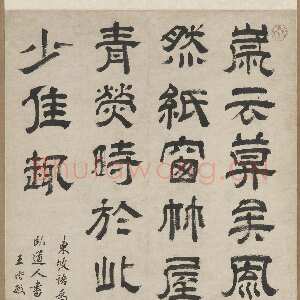 歲云莫矣風
然紙窗竹屋
青熒時於此
少佳趣
東坡語為
臥道人書
王時敏